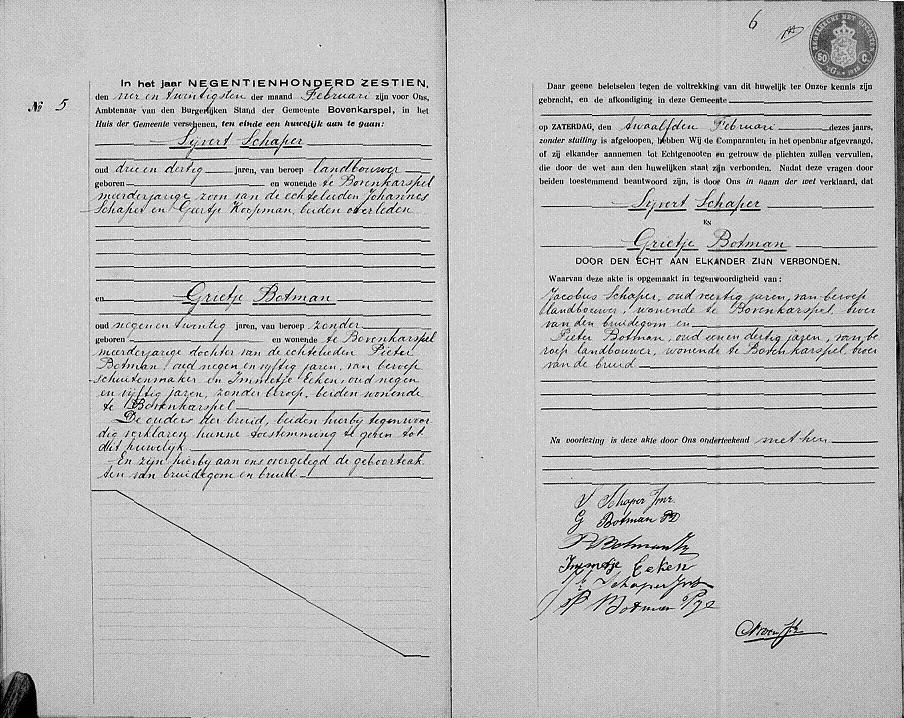 In het jaar NEGENTIENHONDERD ZESTIEN,
№ 5
den vier en twintigsten der maand Februari zijn voor Ons,
Ambtenaar van den Burgerlijken Stand der Gemeente Bovenkarspel, in het
Huis der Gemeente verschenen, ten einde een huwelijk aan te gaan:
Sijvert Schaper
oud drie en dertig jaren, van beroep landbouwer
geboren en wonende te Bovenkarspel
meerderjarige zoon van de echtelieden Johannes
Schaper en Geertje Koopman, beiden overleden
en Grietje Botman
oud negen en twintig jaren, van beroep zonder
geboren en wonende te Bovenkarspel
meerderjarige dochter van de echtelieden Pieter
Botman, oud negen en vijftig jaren, van beroep
schuitenmaker en Immetje Eeken, oud negen
en vijftig jaren, zonder beroep, beiden wonende
te Bovenkarspel
De ouders der bruid, beiden hierbij tegenwoor
dig verklaren hunne toestemming te geven tot
dit huwelijk
En zijn hierbij aan ons overgelegd de geboorteak
ten van bruidegom en bruid.
6
50 C.
Daar geene beletselen tegen de voltrekking van dit huwelijk ter Onzer kennis zijn
gebracht, en de afkondiging in deze Gemeente
op ZATERDAG, den twaalfden Februari dezes jaars,
zonder stuiting is afgeloopen, hebben Wij de Comparanten in het openbaar afgevraagd,
of zij elkander aannemen tot Echtgenooten en getrouw de plichten zullen vervullen,
die door de wet aan den huwelijken staat zijn verbonden. Nadat deze vragen door
beiden toestemmend beantwoord zijn, is door Ons in naam der wet verklaard, dat
Sijvert Schaper
EN
Grietje Botman
DOOR DEN ECHT AAN ELKANDER ZIJN VERBONDEN.
Waarvan deze akte is opgemaakt in tegenwoordigheid van:
Jacobus Schaper, oud veertig jaren, van beroep
landbouwer, wonende te Bovenkarspel, broer
van den bruidegom en
Pieter Botman, oud een en dertig jaren, van be
roep landbouwer, wonende te Bovenkarspel, broer
van de bruid
Na voorlezing is deze akte door Ons onderteekend met hen
S Schaper Jnz.
G Botman PD
P Botman
Immetje Eeken
Jb Schaper
P Botman Pzn